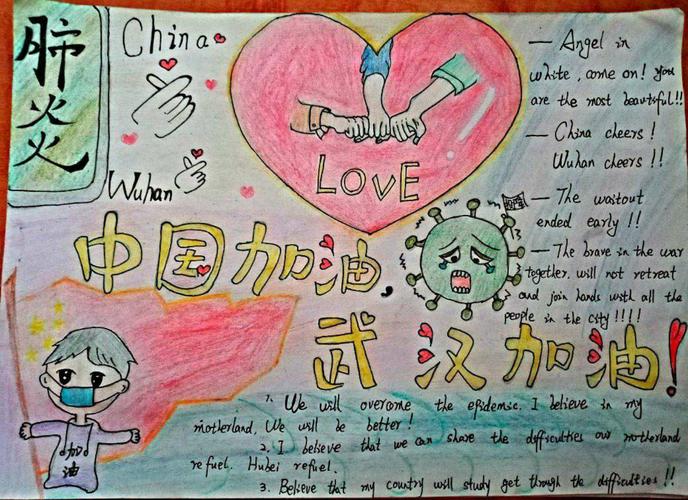 肺炎
China
Wuhan
LOVE
— Angel in
white, come on! you
are the most beautiful!!
— China cheers!
Wuhan cheers!!
— The wastout
ended early!!
— The brave in the war
together. will not retreat
and join hands with all the
people in the city!!!!
中国加油,
武汉加油!
加
油
1. We will overcome the epidemic. I believe in my
motherland, We will be better!
2. I believe that we can share the difficulties our motherland
refuel. Hubei refuel.
3. Believe that my country will study get through the difficulties!!